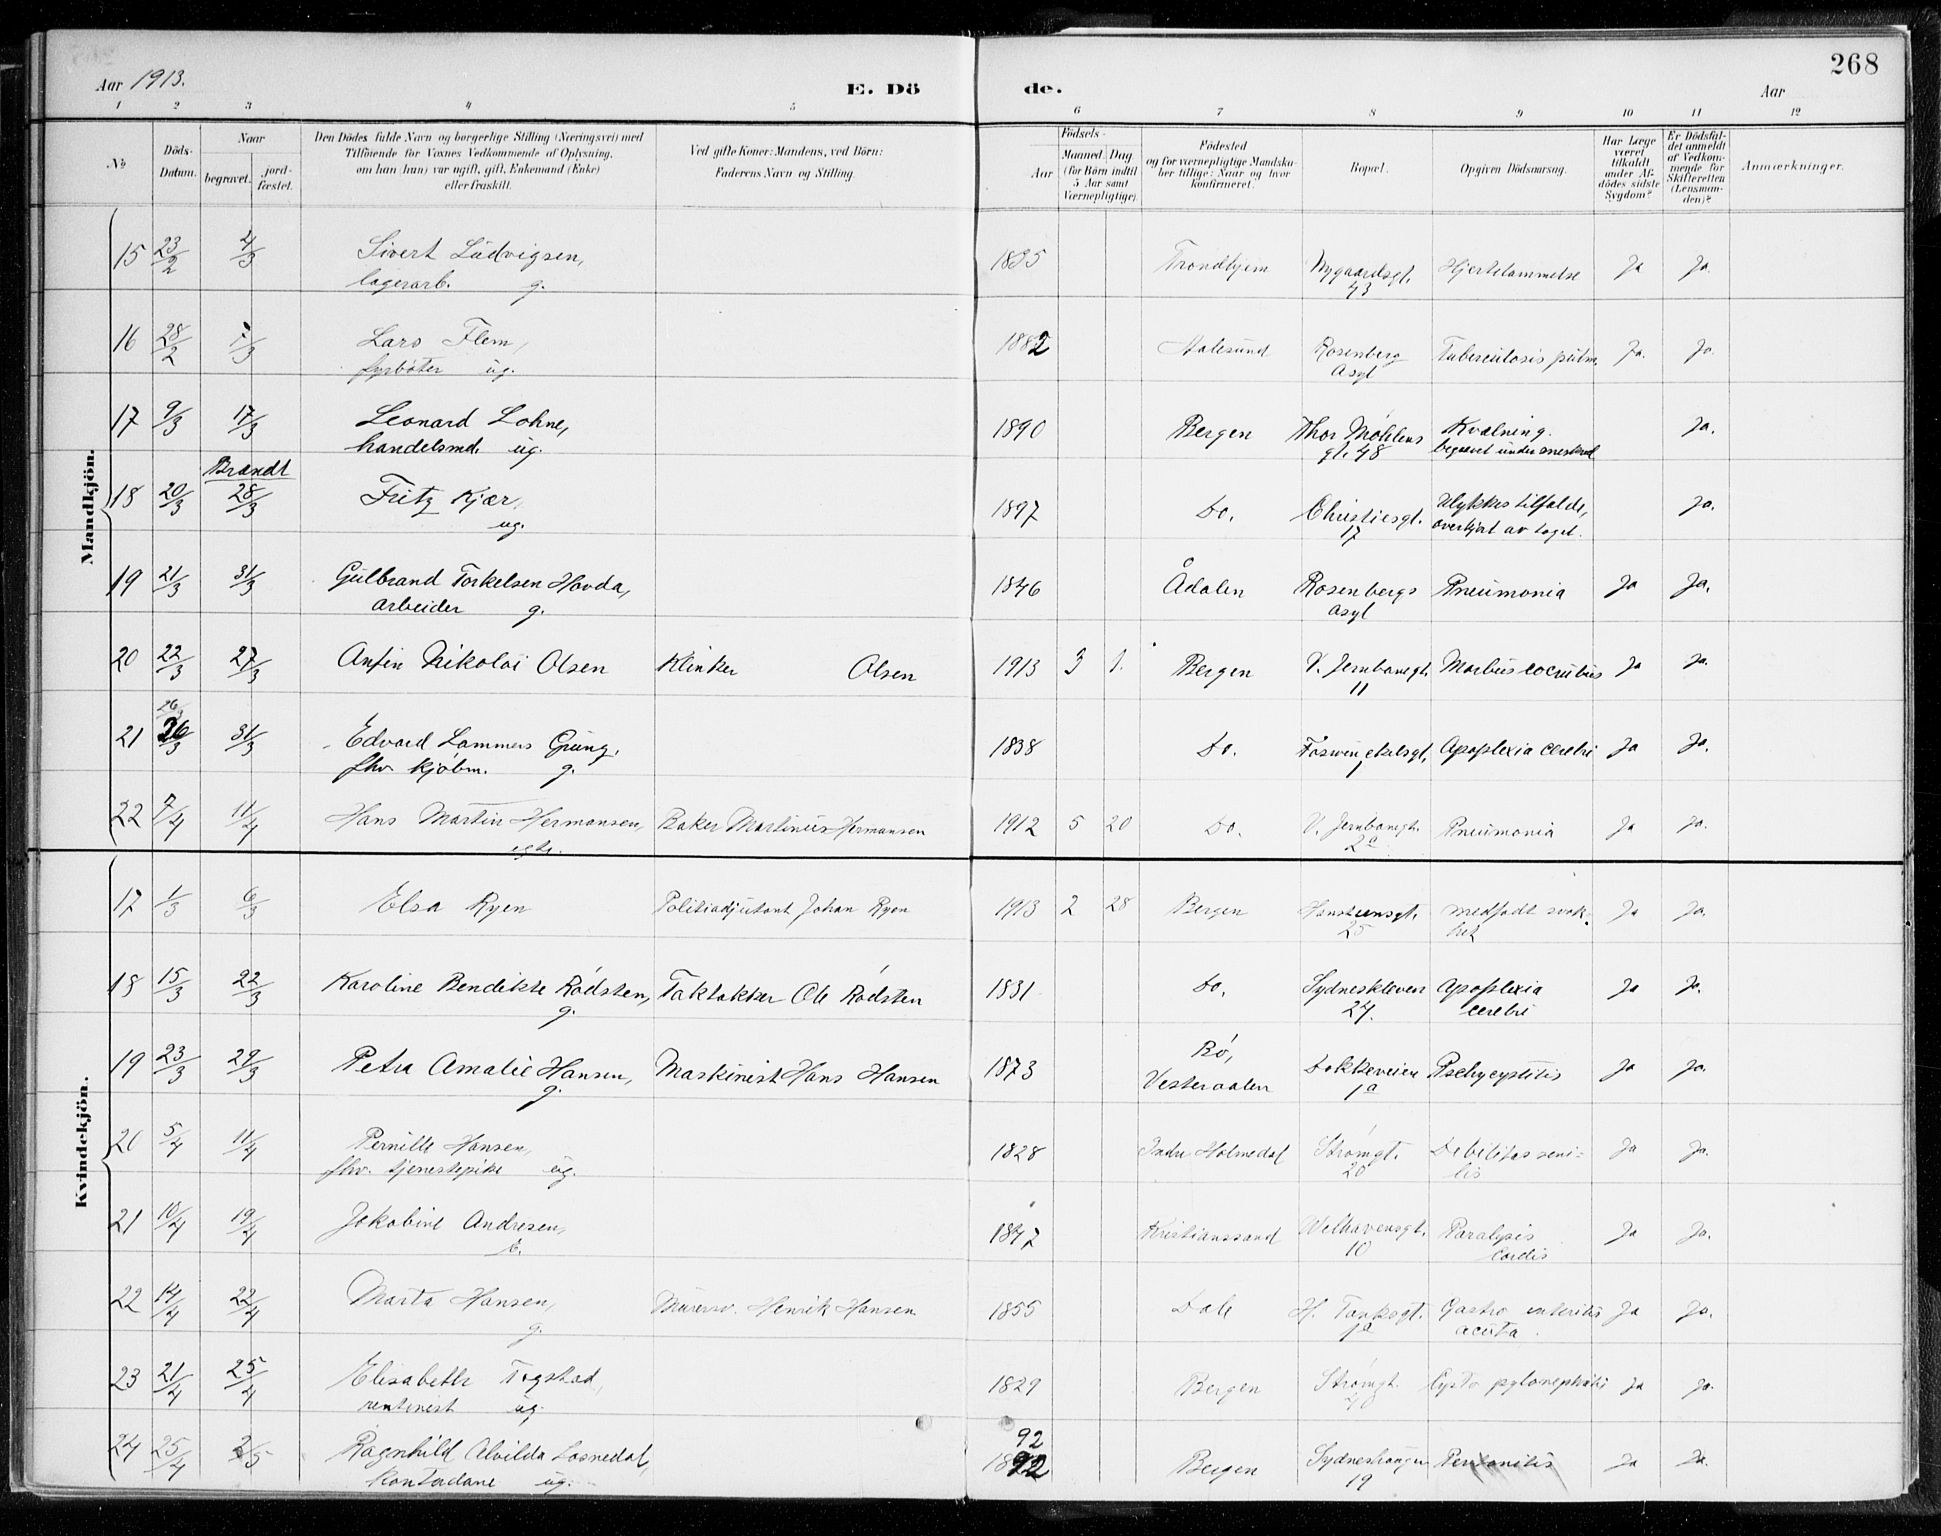 268
Aar 1913.
E. Dö
de.
Aar
1 2 3 4 5 6 7 8 9 10 11 12
No
Döds-Datum.
Naar
begravet.
jord-fæstet.
Den Dödes fulde Navn og borgerlige Stilling (Næringsvei) med
Tilföiende for Voxnes Vedkommende af Oplysning,
om han (hun) var ugift, gift, Enkemand (Enke)
eller fraskilt.
Ved gifte Koner: Mandens, ved Börn:
Faderens Navn og Stilling.
Födsels-
Aar
Maaned. Dag
(for Börn indtil
5 Aar samt
Værnepligtige)
Födested
og for værnepligtige Mandska-
ber tillige: Naar og hvor
konfirmeret.
Bopæl.
Opgiven Dödsaarsag.
Har Læge
været
tilkaldt
under Af-
dödes sidste
Sygdom?
Er Dödsfal-
det anmeldt
af Vedkom-
mende for
Skifteretten
(Lensman-
den)?
Anmærkninger.
Mandkjön.
15 23/2 4/3 Sivert Ludvigsen, 1835 Trondhjem Nygaardsgt. Hjertelammelse Ja Ja.
lagerarb. g. 43
16 28/2 7/3 Lars Flem, 1882 Aalesund Rosenberg Tuberculosis pulm. Ja. Ja.
fyrböter ug. Asyl
17 9/3 17/3 Leonard Lohne, 1890 Bergen Thor Møhlens Kvælning. Ja.
handelsmd. ug. gt. 48 begravet under sneskred
Brændt
18 20/3 28/3 Fritz Kjær, 1897 Do. Christiesgt. Ulykkestilfælde, Ja.
ug. 17 overkjørt av toget.
19 21/3 31/3 Gulbrand Torkelsen Hovda, 1846 Ådalen Rosenbergs Pneumonia Ja Ja.
arbeider g. asyl
20 22/3 27/3 Anfin Nikolai Olsen Klinker Olsen 1913 3 1. Bergen V. Jernbanegt. Morbus Ja Ja.
11
26/3
21 26/3 31/3 Edvard Lammers Grung, 1838 Do. Apoplexia cerebri Ja Ja.
fhv. kjøbm. g.
22 7/4 11/4 Hans Martin Hermansen, Baker Martinius Hermansen 1912 5 20 Do. V. Jernbanegt. Pneumonia Ja Ja.
egte. 2a
Kvindekjön.
17 1/3 6/3 Elsa Ryen Politiadjutant Johan Ryen 1913 2 28 Bergen Hansteensgt. medfødt svak- Ja Ja.
25 het
18 15/3 22/3 Karoline Bendikte Rødsten, Taktækker Ole Rødsten 1831 Do. Sydneskleven Apoplexia Ja Ja.
g. 24. cerebri
19 23/3 29/3 Petra Amalie Hansen, Maskinist Hans Hansen 1873 Bø, Dokkeveien Ja Ja.
g. Vesteraalen 1a
20 5/4 11/4 Pernille Hansen, 1828 Indre Holmedal Strømgt. Debilitas seni- Ja Ja.
fhv. tjenestepike ug. 20 lis
21 10/4 19/4 Jakobine Andresen, 1847 Kristianssand Welhavensgt. Paralysis Ja Ja.
E. 10 Cordis
22 14/4 22/4 Marta Hansen, Murersv. Henrik Hansen 1855 Dale H. Tanksgt. Gastro enteritis Ja Ja.
g. 1a acuta
23 21/4 25/4 Elisabeth Togstad, 1829 Bergen Strømgt. Cysto pylonephritis Ja Ja.
rentenist ug.
92
24 25/4 2/5 Ragnhild Alvilda Losnedal, 1892 Bergen Sydneshaugen Peritonitis Ja Ja.
Kontordame ug. 19